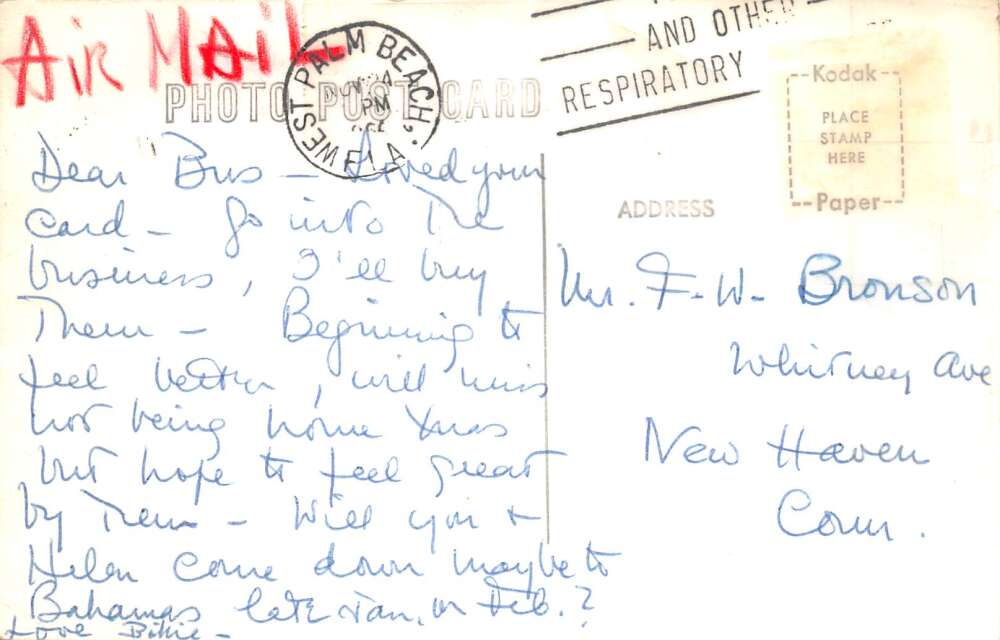 Air Mail
PHOTO POST CARD
WEST PALM BEACH, FLA.
NOV
PM
AND OTHER
RESPIRATORY
Kodak
PLACE
STAMP
HERE
Paper
ADDRESS
Dear Bus - Loved your
card - Go into the
business, I'll buy
them - Beginning to
feel better, will miss
not being home Xmas
but hope to feel great
by then - Will you +
Helen come down maybe to
Bahamas late Jan. or Feb.?
Love Billie -
Mr. F. W. Bronson
Whitney Ave
New Haven
Conn.